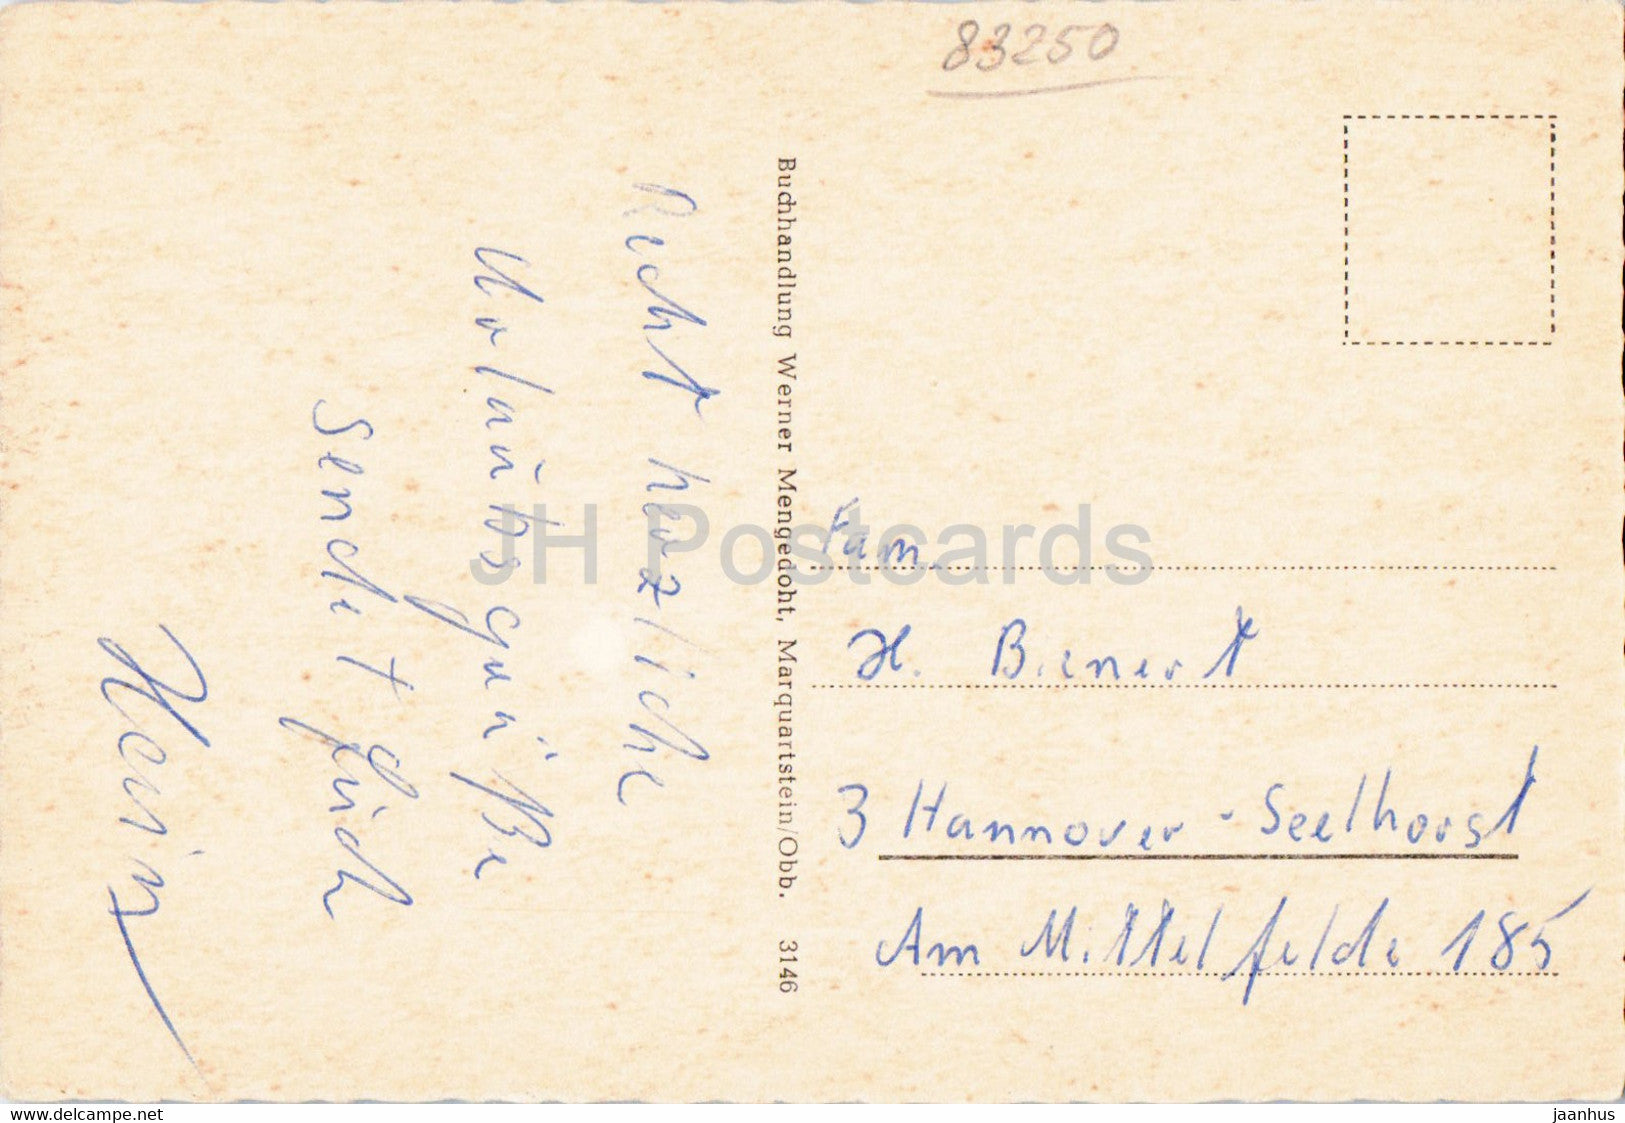 83250
Recht herzliche
Urlaubsgrüße
sendet Euch
Heinz
Buchhandlung Werner Mengedoht, Marquartstein/Obb. 3146
Fam.
H. Bienert
3 Hannover-Seelhorst
Am Mittelfelde 185
JH Postcards
www.delcampe.net
jaanhus